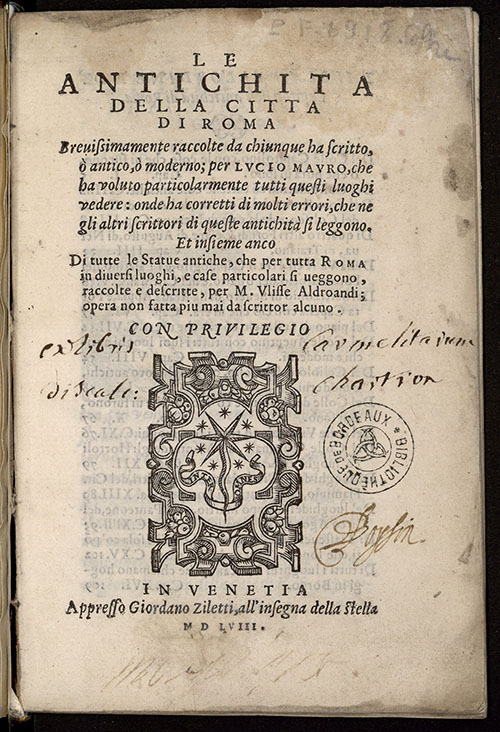 LE
ANTICHITA
DELLA CITTA
DI ROMA
Breuissimamente raccolte da chiunque ha scritto,
ò antico, ò moderno; per LVCIO MAVRO, che
ha voluto particolarmente tutti questi luoghi
vedere: onde ha corretti di molti errori, che ne
gli altri scrittori di queste antichità si leggono.
Et insieme anco
Di tutte le Statue antiche, che per tutta ROMA
in diuersi luoghi, e case particolari si ueggono,
raccolte e descritte, per M. Vlisse Aldroandi;
opera non fatta piu mai da scrittor alcuno.
CON PRIVILEGIO
ex libris Carmelitarum
discalc:
BIBLIOTHEQUE DE BORDEAUX
IN VENETIA
Appresso Giordano Ziletti, all'insegna della stella
M D LVIII.